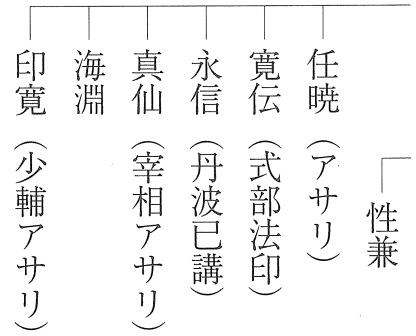 性兼
任暁（アサリ）
寛伝（式部法印）
永信（丹波已講）
真仙（宰相アサリ）
海淵
印寛（少輔アサリ）